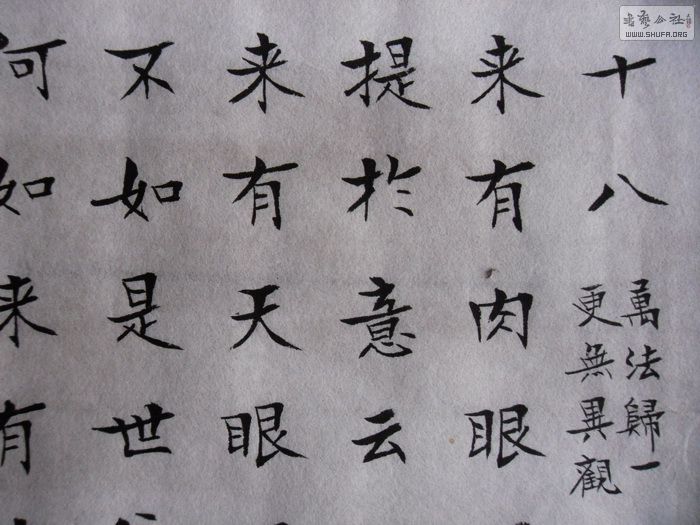 十八
萬法歸一
更無異觀
来有肉眼
提於意云
来有天眼
不如是世
何如来有
书艺公社
WWW.SHUFA.ORG